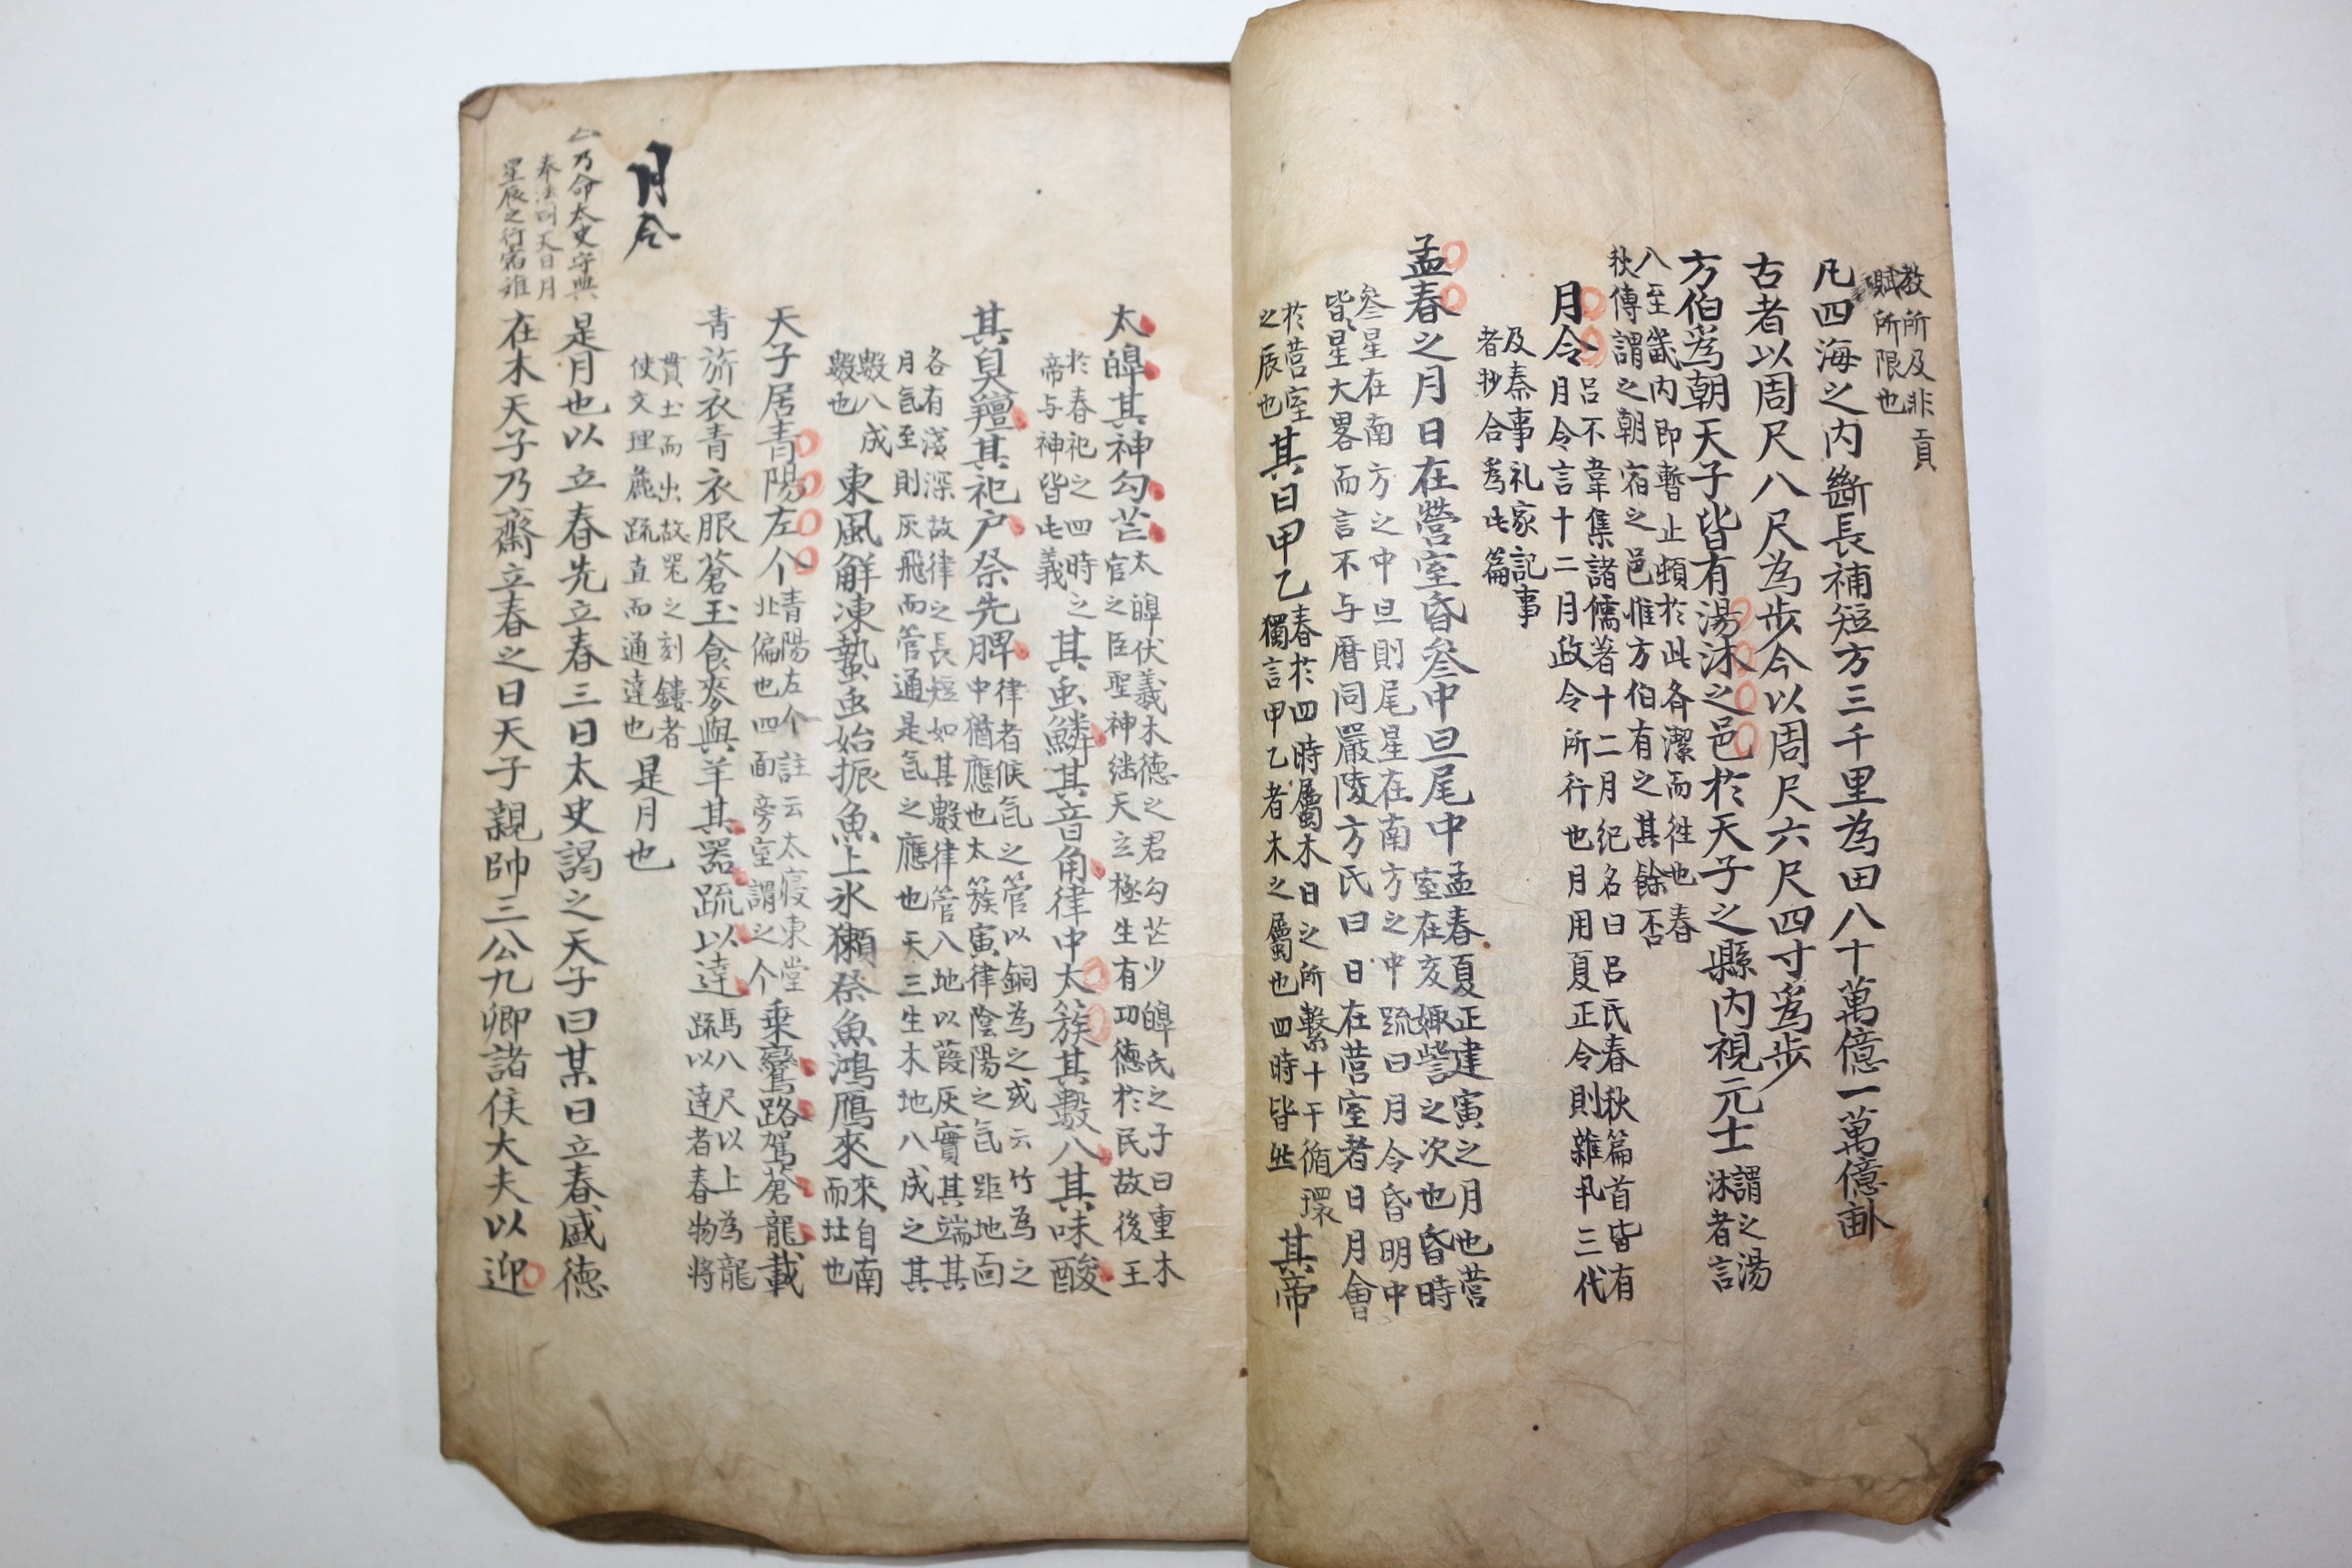 教所及非貢
賦所限也
凡四海之內斷長補短方三千里為田八十萬億一萬億畝
古者以周尺八尺為步今以周尺六尺四寸爲步
方伯爲朝天子皆有湯沐之邑於天子之縣內視元士
謂之湯
沐者言
八至畿內即暫止頓於此齐潔而徃也春
秋傳謂之朝宿之邑惟方伯有之其餘否
月令
呂不韋集諸儒著十二月紀名曰呂氏春秋篇首皆有
月令言十二月政令所行也月用夏正令則雜丮三代
及秦事礼家記事
者抄合爲此篇
孟春之月日在營室昏參中旦尾中
孟春夏正建寅之月也营
室在亥娵訾之次也昏時
參星在南方之中旦則尾星在南方之中疏曰月令昏明中
皆星大畧而言不与曆同嚴陵方氏曰日在营室者日月會
於营室
之辰也
其日甲乙
春於四時屬木日之所繫十干循環
獨言甲乙者木之屬也四時皆然
其帝
太皥其神勾芒
太皥伏羲木德之君勾芒少皥氏之子曰重木
官之臣聖神継天立極生有功德於民故後王
於春祀之四時之
帝与神皆此義
其虫鱗其音角律中太簇其數八其味酸
其臭羶其祀户祭先脾
律者候气之管以銅為之或云竹為之
中猶應也太簇寅律陰陽之气距地面
各有淺深故律之長短如其數律管八地以葭灰實其端其
月气至則灰飛而管通是气之應也天三生木地八成之其
數八成
數也
東風解凍蟄虫始振魚上氷獺祭魚鴻鴈來
來自南
而北也
天子居青陽左个
青陽左个註云太寢東堂
北偏也四面旁室謂之个
乗鸞路駕蒼龍載
青旂衣青衣服蒼玉食麥與羊其器疏以達
馬八尺以上為龍
疏以達者春物將
貫土而出故器之刻鏤者
使文理麁疏直而通達也
是月也
月令
是月也以立春先立春三日太史謁之天子曰某日立春盛德
在木天子乃齋立春之日天子親帥三公九卿諸侯大夫以迎
乃命太史守典
奉法司天日月
星辰之行宿離